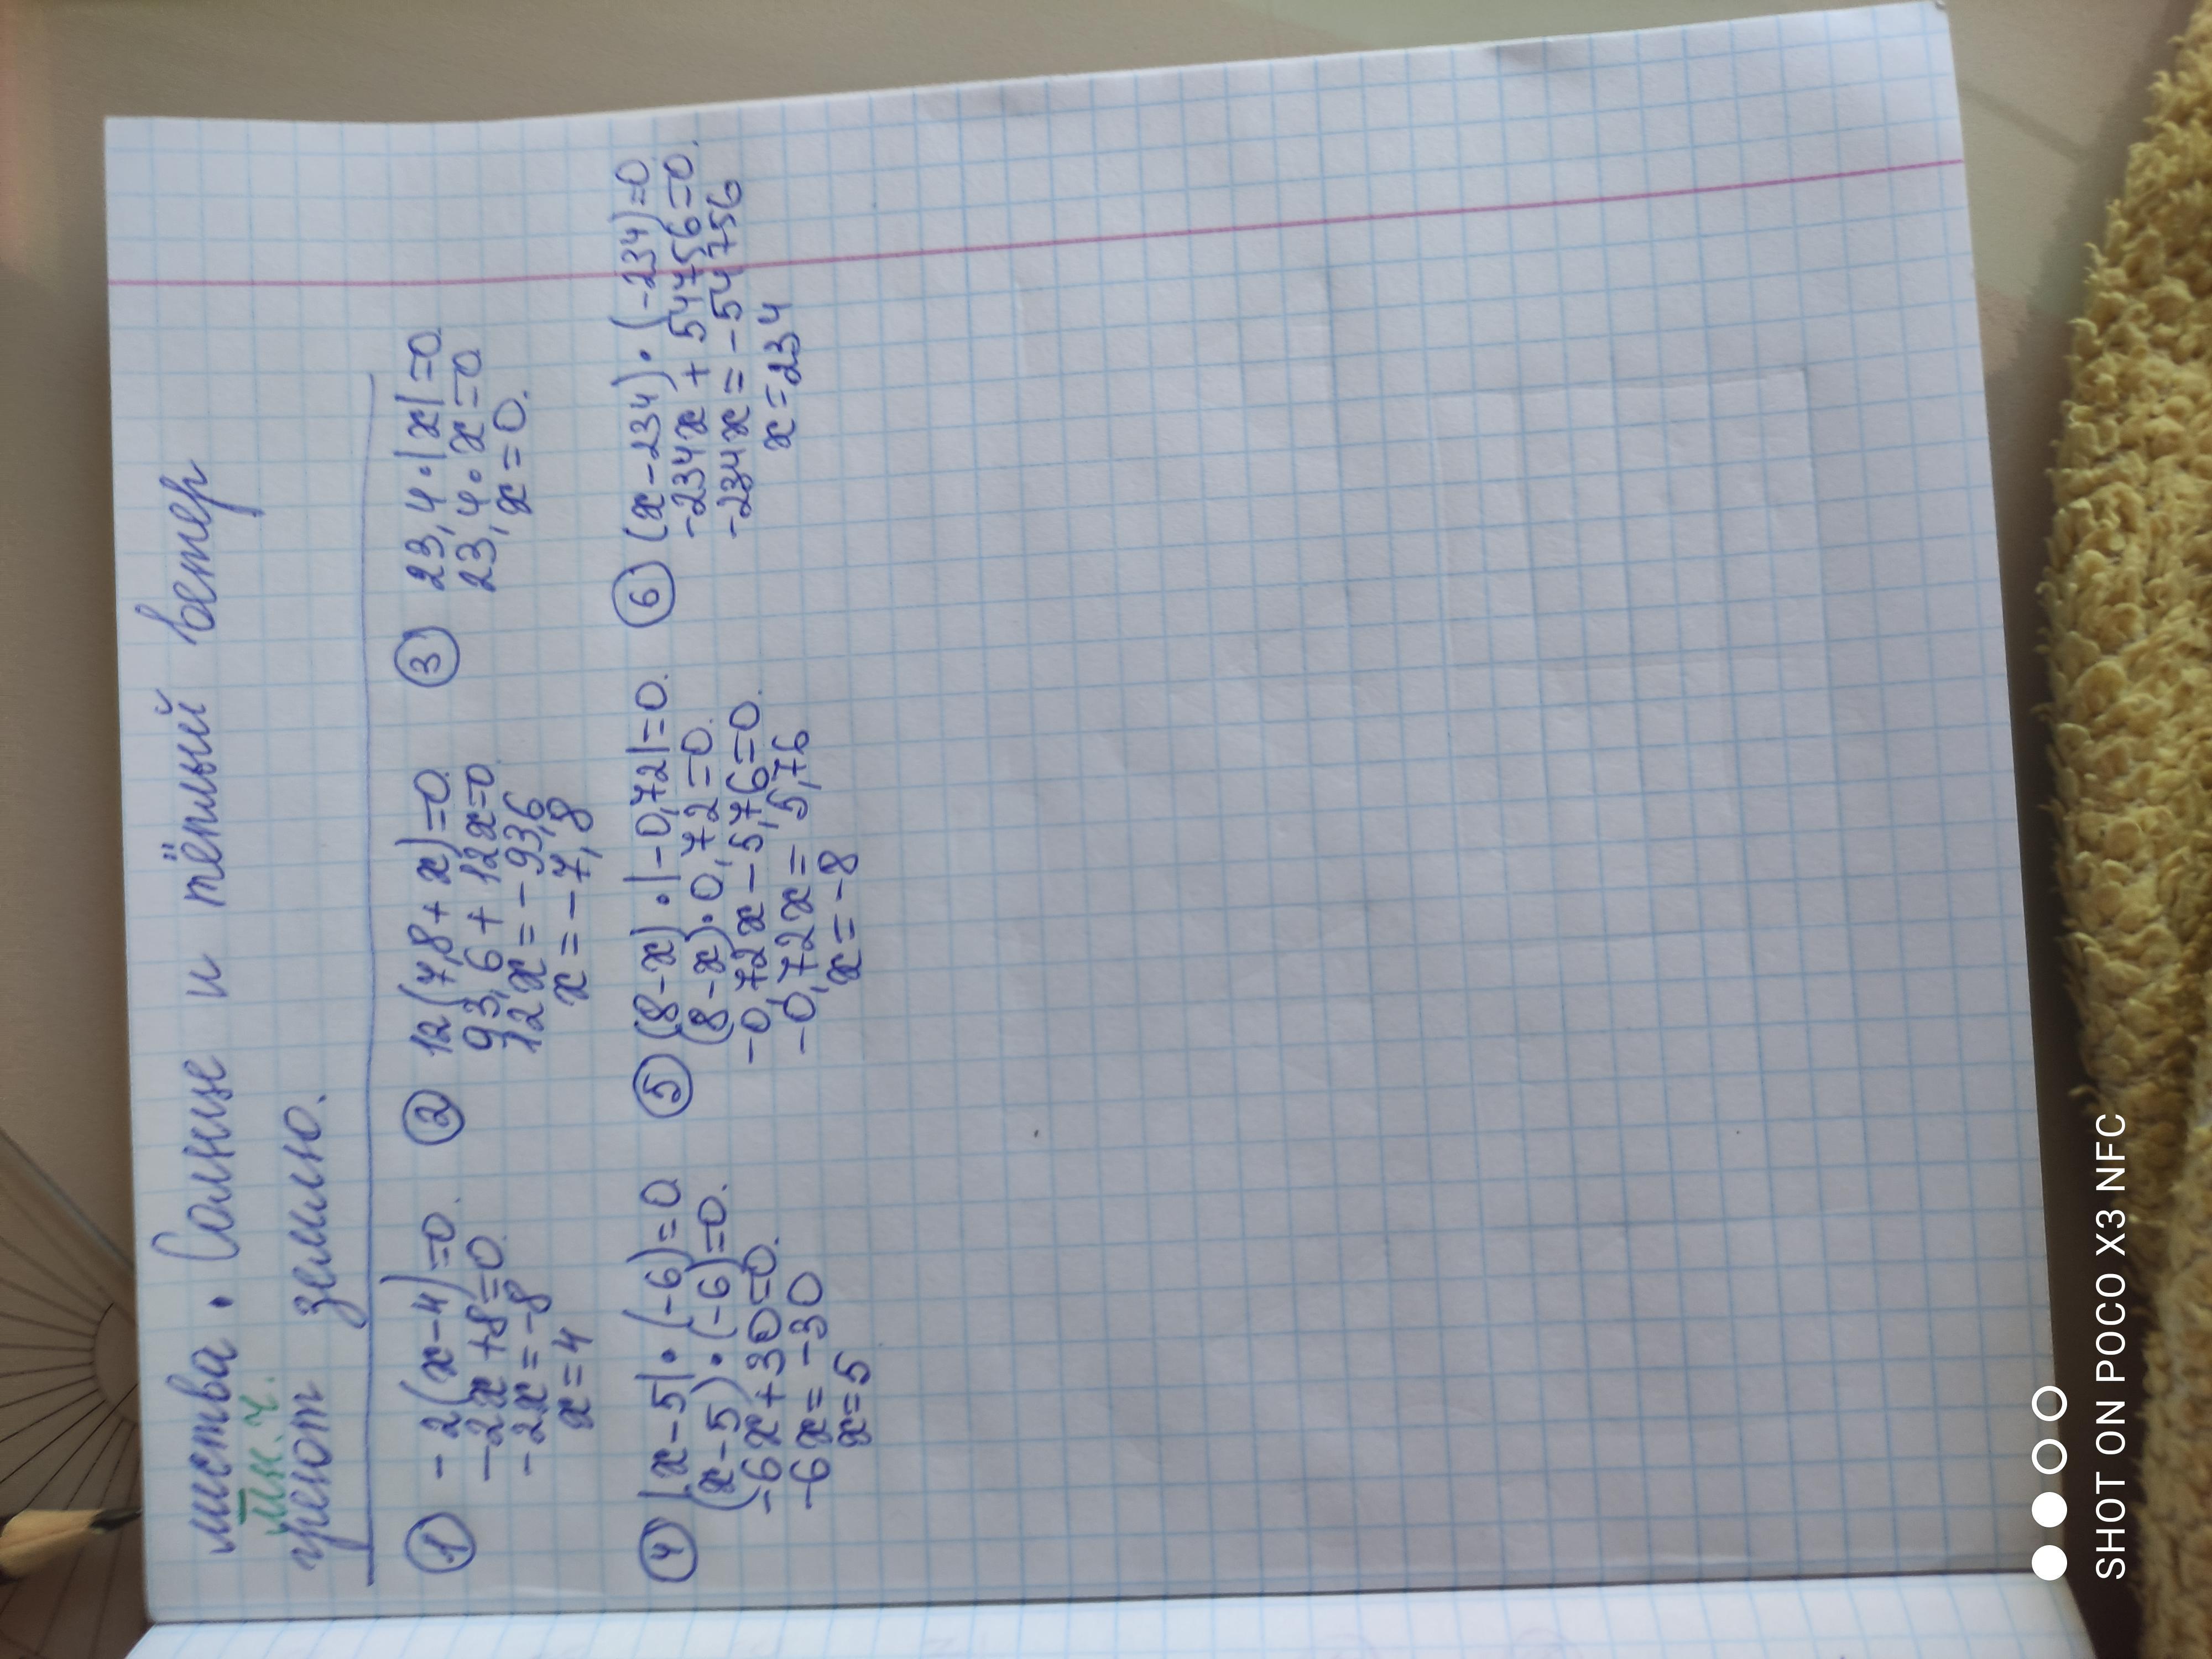 листва. Солнце и тёплый ветер
мн.ч.
греют землю.
① -2(x-4)=0.
-2x+8=0.
-2x=-8
x=4
② 12(7,8+x)=0.
93,6+12x=0
12x=-93,6
x=-7,8
③ 23,4·|x|=0.
23,4·x=0
x=0.
④ |x-5|·(-6)=0
(x-5)·(-6)=0.
-6x+30=0.
-6x=-30
x=5
⑤ (8-x)·|-0,72|=0.
(8-x)·0,72=0.
-0,72x-5,76=0.
-0,72x=5,76
x=-8
⑥ (x-234)·(-234)=0
-234x+54756=0.
-234x=-54756
x=234
SHOT ON POCO X3 NFC